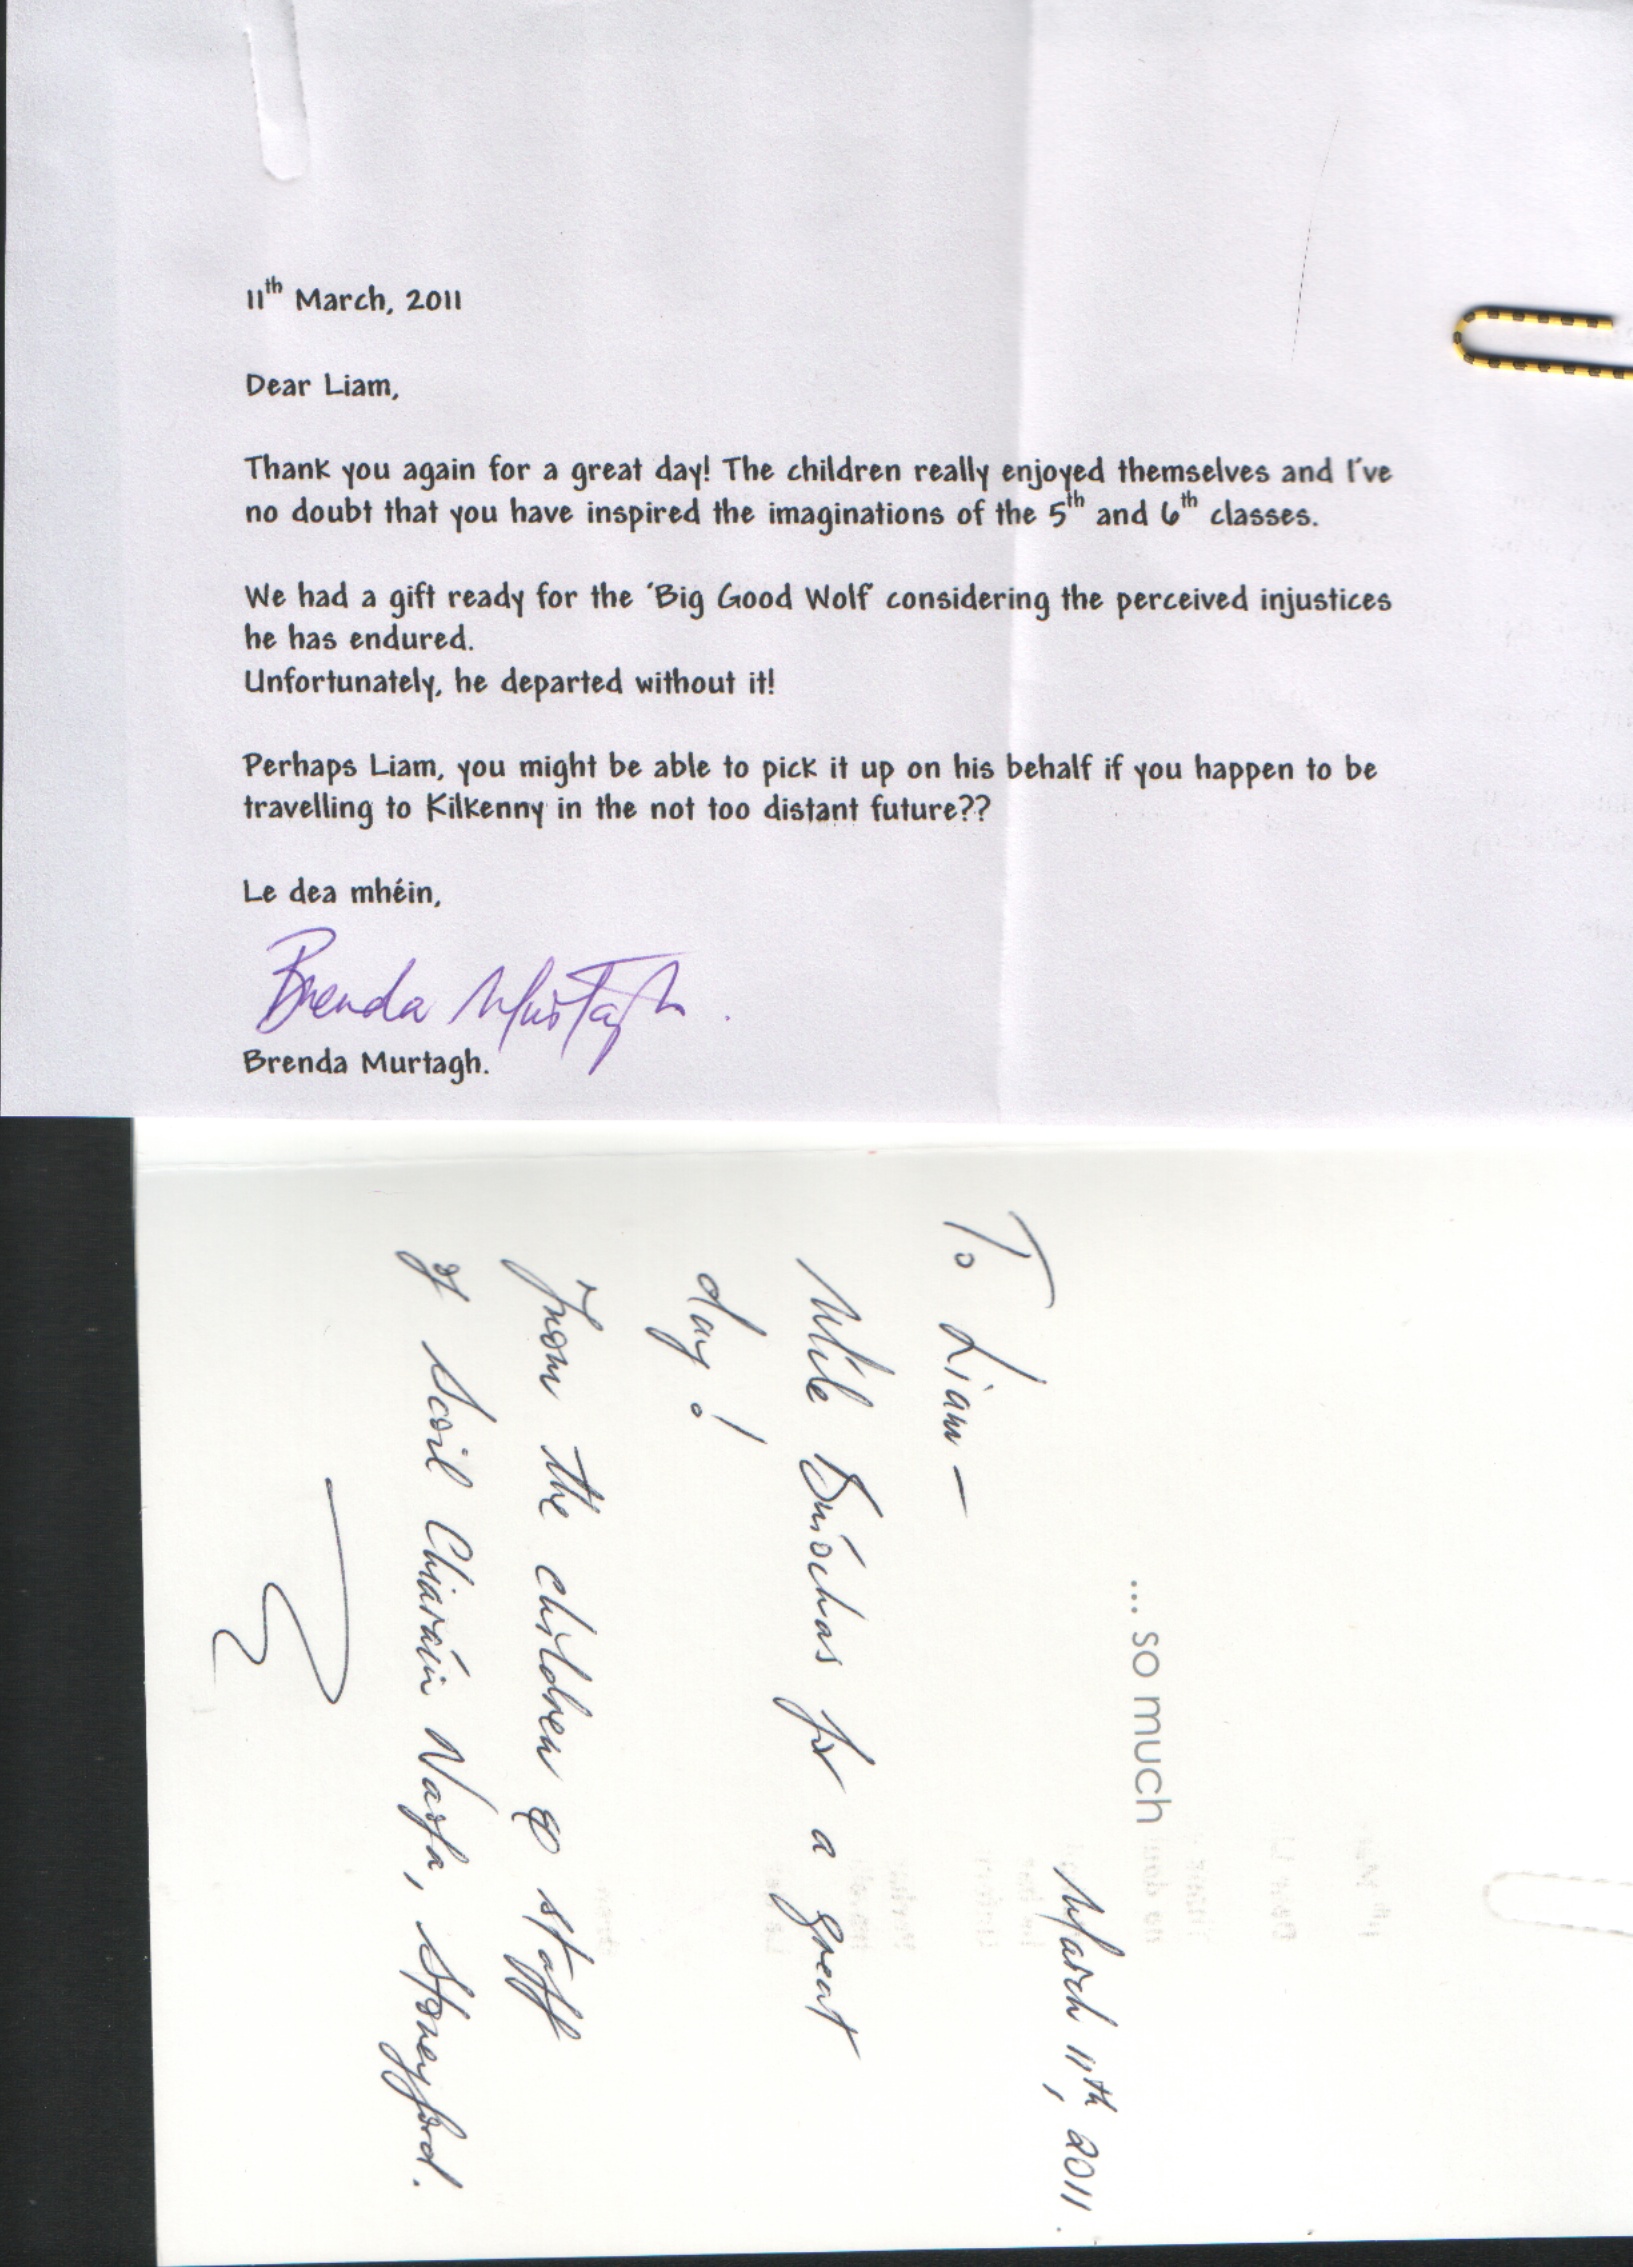 11th March, 2011
Dear Liam,
Thank you again for a great day! The children really enjoyed themselves and I've
no doubt that you have inspired the imaginations of the 5th and 6th classes.
We had a gift ready for the 'Big Good Wolf' considering the perceived injustices
he has endured.
Unfortunately, he departed without it!
Perhaps Liam, you might be able to pick it up on his behalf if you happen to be
travelling to Kilkenny in the not too distant future??
Le dea mhéin,
Brenda Murtagh.
Brenda Murtagh.
... so much
March 11th, 2011.
To Liam –
Míle Buíochas for a great
day!
From the children & staff
of Scoil Chiaráin Naofa, Stoneyford.